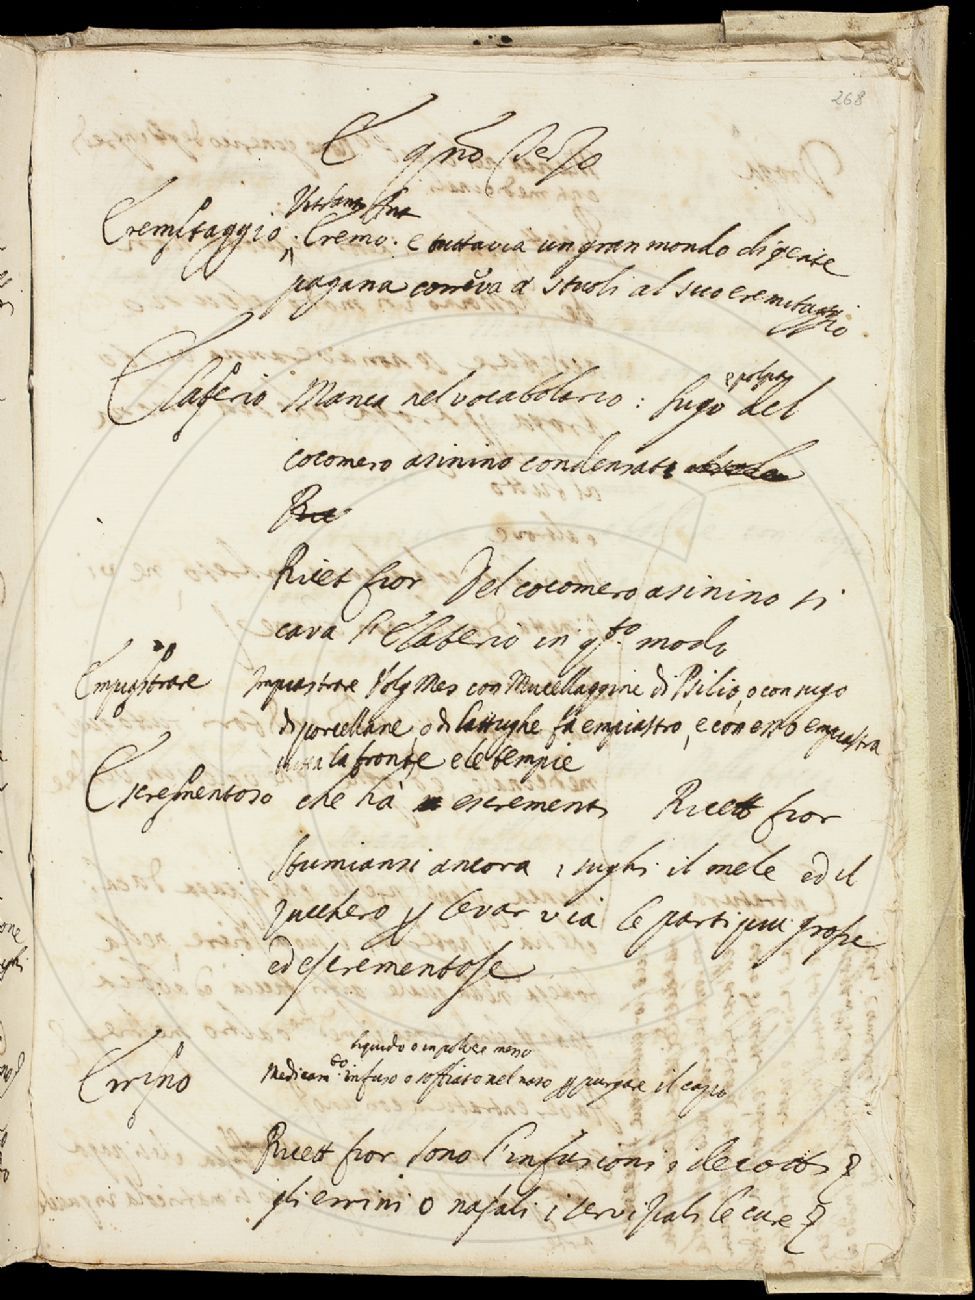 268
E qno Terzo
Vit SS Pad
Eremitaggio . Eremo. e tuttavia un gran mondo di gente
pagana correva a stuoli al suo eremitaggio
e polpa
Elaterio Manca nel vocabolario: sugo del
cocomero asinino condensato
Rice
Ricet fior Del cocomero asinino si
cava l'Elaterio in qsto modo
Empiastrare Impiastrare Volg Mes con Mucellaggine di Psilio, o con sugo
di porcellane o di lattughe fà empiastro, e con esso empiastra
tutta la fronte e le tempie
Escrementoso che hà escrementi Ricett fior
Stumiansi ancora i sughi il mele ed il
zucchero p levar via le parti piu grosse
ed escrementose
liquido o in polvere messo
Errino Medicamto infuso o soffiato nel naso p purgare il capo
Ricett fior sono l'infusioni i decotti
gli errini o nasali i cervisiali le cure